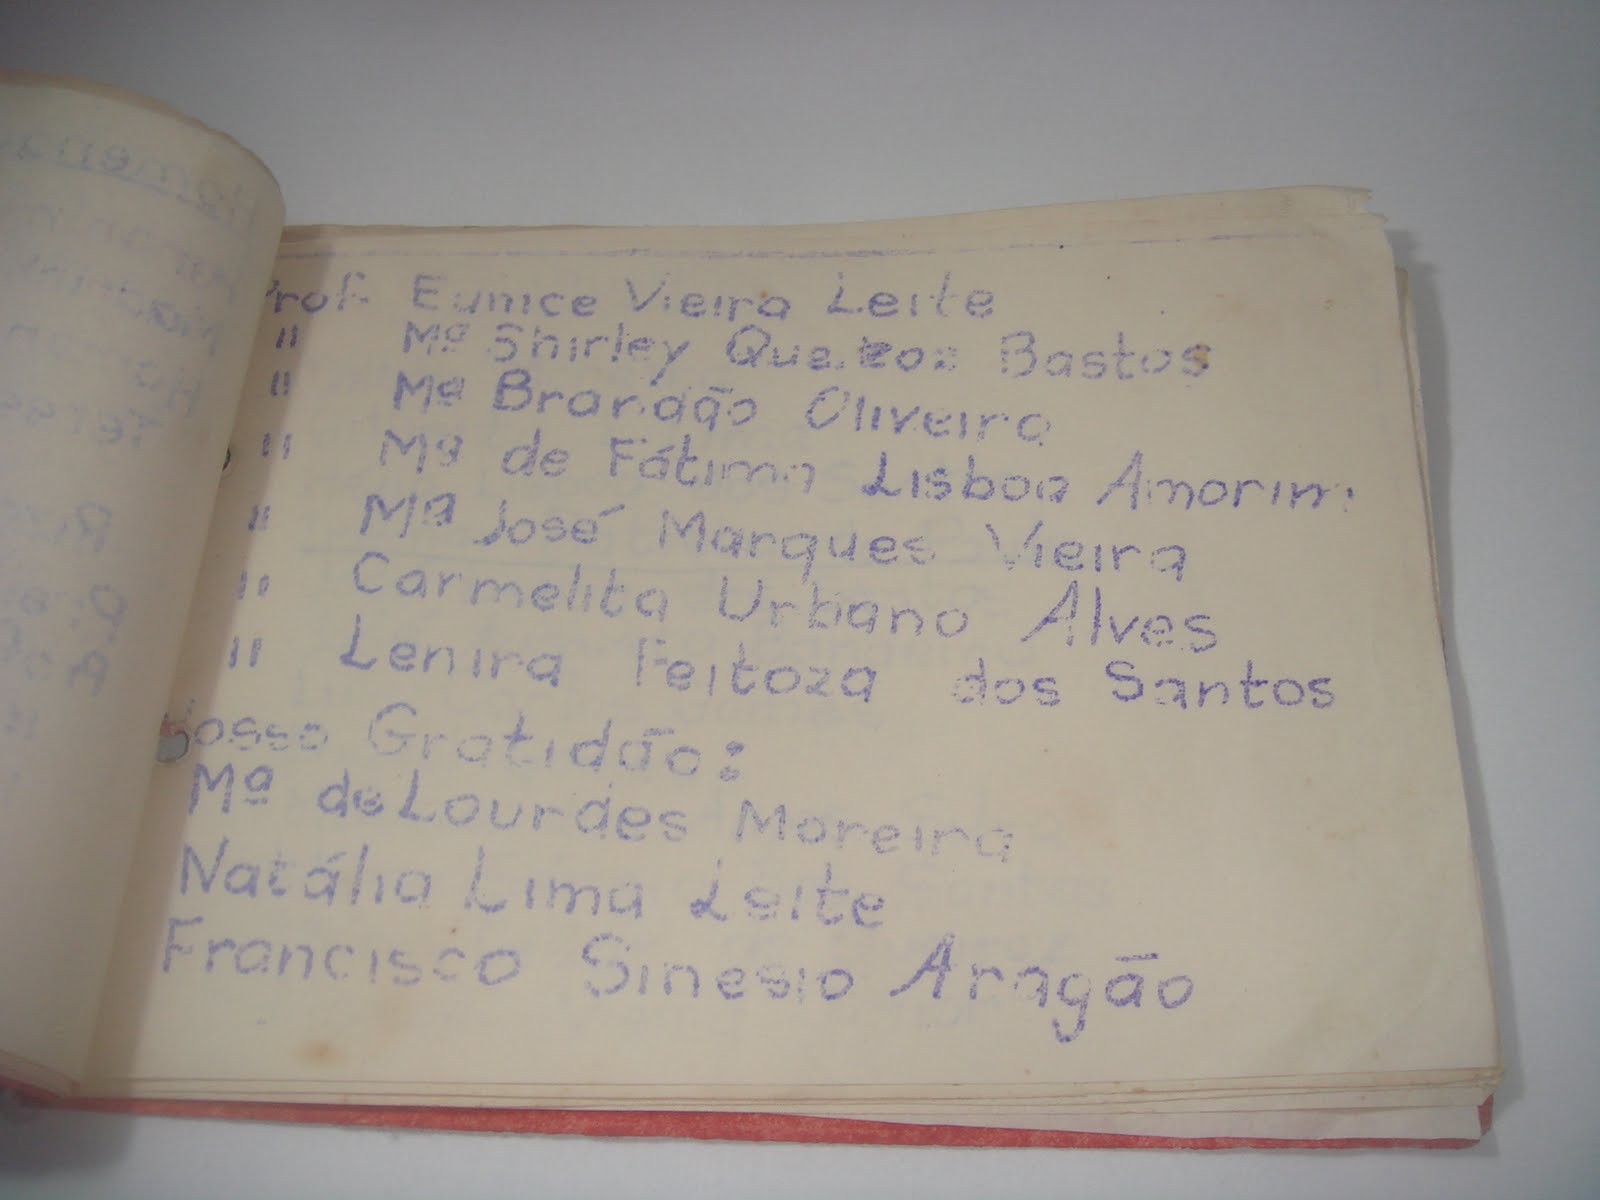 Prof. Eunice Vieira Leite
" Mª Shirley Queiroz Bastos
" Mª Brandão Oliveira
" Mª de Fátima Lisboa Amorim
" Mª José Marques Vieira
" Carmelita Urbano Alves
" Lenira Feitoza dos Santos
Nosso Gratidão:
Mª de Lourdes Moreira
Natália Lima Leite
Francisco Sinesio Aragão